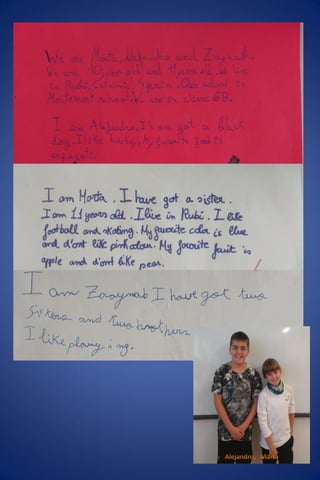 We are Marta, Alejandro and Zaynab.
We are 10 years old and 11 years old. We live
in Rubí, Catalonia, Spain. Our school is
Montessori school. We are in class 6B.
I am Alejandro. I have got a black
dog. I like hockey. My favorite food is
I am Marta. I have got a sister.
I am 11 years old. I live in Rubí. I like
football and skating. My favorite color is blue
and don't like pink colour. My favorite fruit is
apple and don't like pear.
I am Zaaynab I have got two
sisters and two brothers
I like playing.
Alejandro Marta